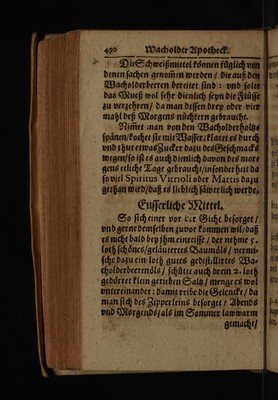 490 Wacholder Apotheck.
Die Schweißmittel können füglich von
denen sachen genom̃en werden / die auß den
Wacholderbeeren bereitet sind: und solte
das Mueß wol sehr dienlich seyn die Flüsse
zu verzehren / da man dessen drey oder vier
mahl deß Morgens nüchtern gebraucht.
Nim̃et man von den Wacholderholtz
spänen / kochet sie mit Wasser / klaret es durch
und thut etwas Zucker dazu des Geschmacks
wegen / so ist es auch dienlich davon des mor-
gens etliche Tage gebrauch / insonderheit da
so viel Spiritus Vitrioli oder Martis dazu
gethan wird / daß es lieblich säwerlich werde.
Eusserliche Mittel.
So sich einer vor der Gicht besorget /
und gerne demselben zuvor kommen wil / daß
es nicht bald bey ihm einreisse / der nehme 5.
loth schönes / geläutertes Baumöls / vermi-
sche dazu ein loth gutes gedistillirtes Wa-
cholderbeernöls / schütte auch drein 2. loth
gedörret klein getrieben Saltz / menge es wol
untereinander: damit reibe die Gelencke / da
man sich des Zipperleins besorget / Abends
und Morgends / als im Sommer lawwarm
gemacht /